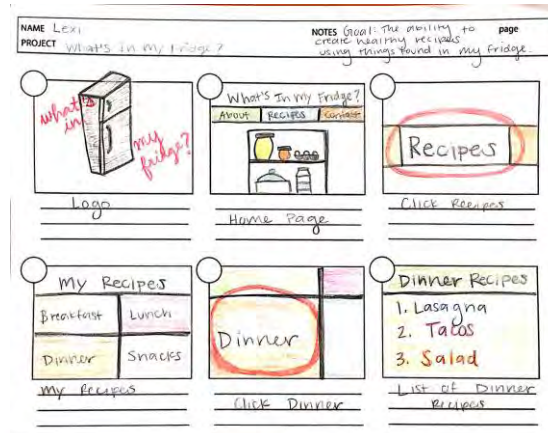 NAME Lexi
PROJECT What's In My Fridge?
NOTES Goal: The ability to
create healthy recipes
using things found in my fridge.
page
what's
in
my
fridge?
Logo
What's In My Fridge?
About Recipes Contact
Home Page
Recipes
Click Recipes
My Recipes
Breakfast Lunch
Dinner Snacks
My Recipes
Dinner
Click Dinner
Dinner Recipes
1. Lasagna
2. Tacos
3. Salad
List of Dinner
Recipes